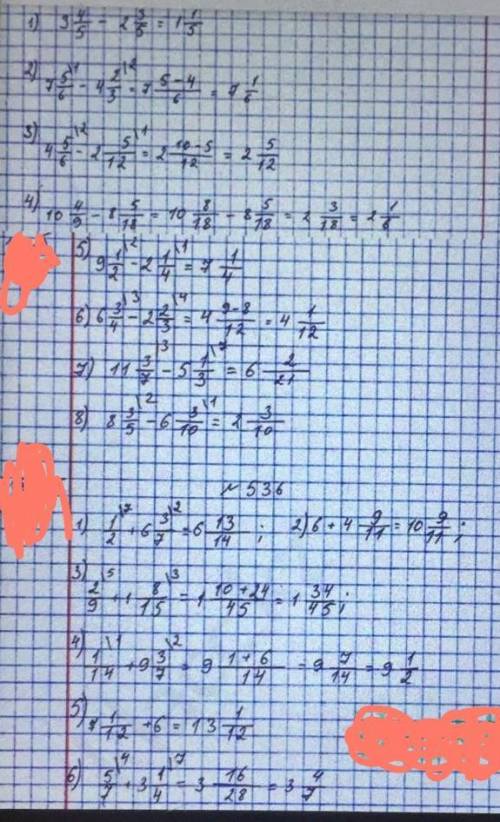 1) 3 4/5 - 2 3/5 = 1 1/5
2) 7 5/6 \1 - 4 2/3 \2 = 7 5-4/6 = 7 1/6
3) 4 5/6 \2 - 2 5/12 \1 = 2 10-5/12 = 2 5/12
4) 10 4/9 - 8 5/18 = 10 8/18 - 8 5/18 = 2 3/18 = 2 1/6
5) 9 1/2 \2 - 2 1/4 \1 = 7 1/4
6) 6 3/4 \3 - 2 2/3 \4 = 4 9-8/12 = 4 1/12
7) 11 3/7 \3 - 5 1/3 \7 = 6 2/21
8) 8 3/5 \2 - 6 3/10 \1 = 2 3/10
№536
1) 1/2 \7 + 6 3/7 \2 = 6 13/14 ; 2) 6 + 4 9/11 = 10 9/11 ;
3) 2/9 \5 + 1 8/15 \3 = 1 10+24/45 = 1 34/45 ;
4) 1/14 \1 + 9 3/7 \2 = 9 1+6/14 = 9 7/14 = 9 1/2
5) 7 1/12 + 6 = 13 1/12
6) 5/7 \4 + 3 1/4 \7 = 3 16/28 = 3 4/7